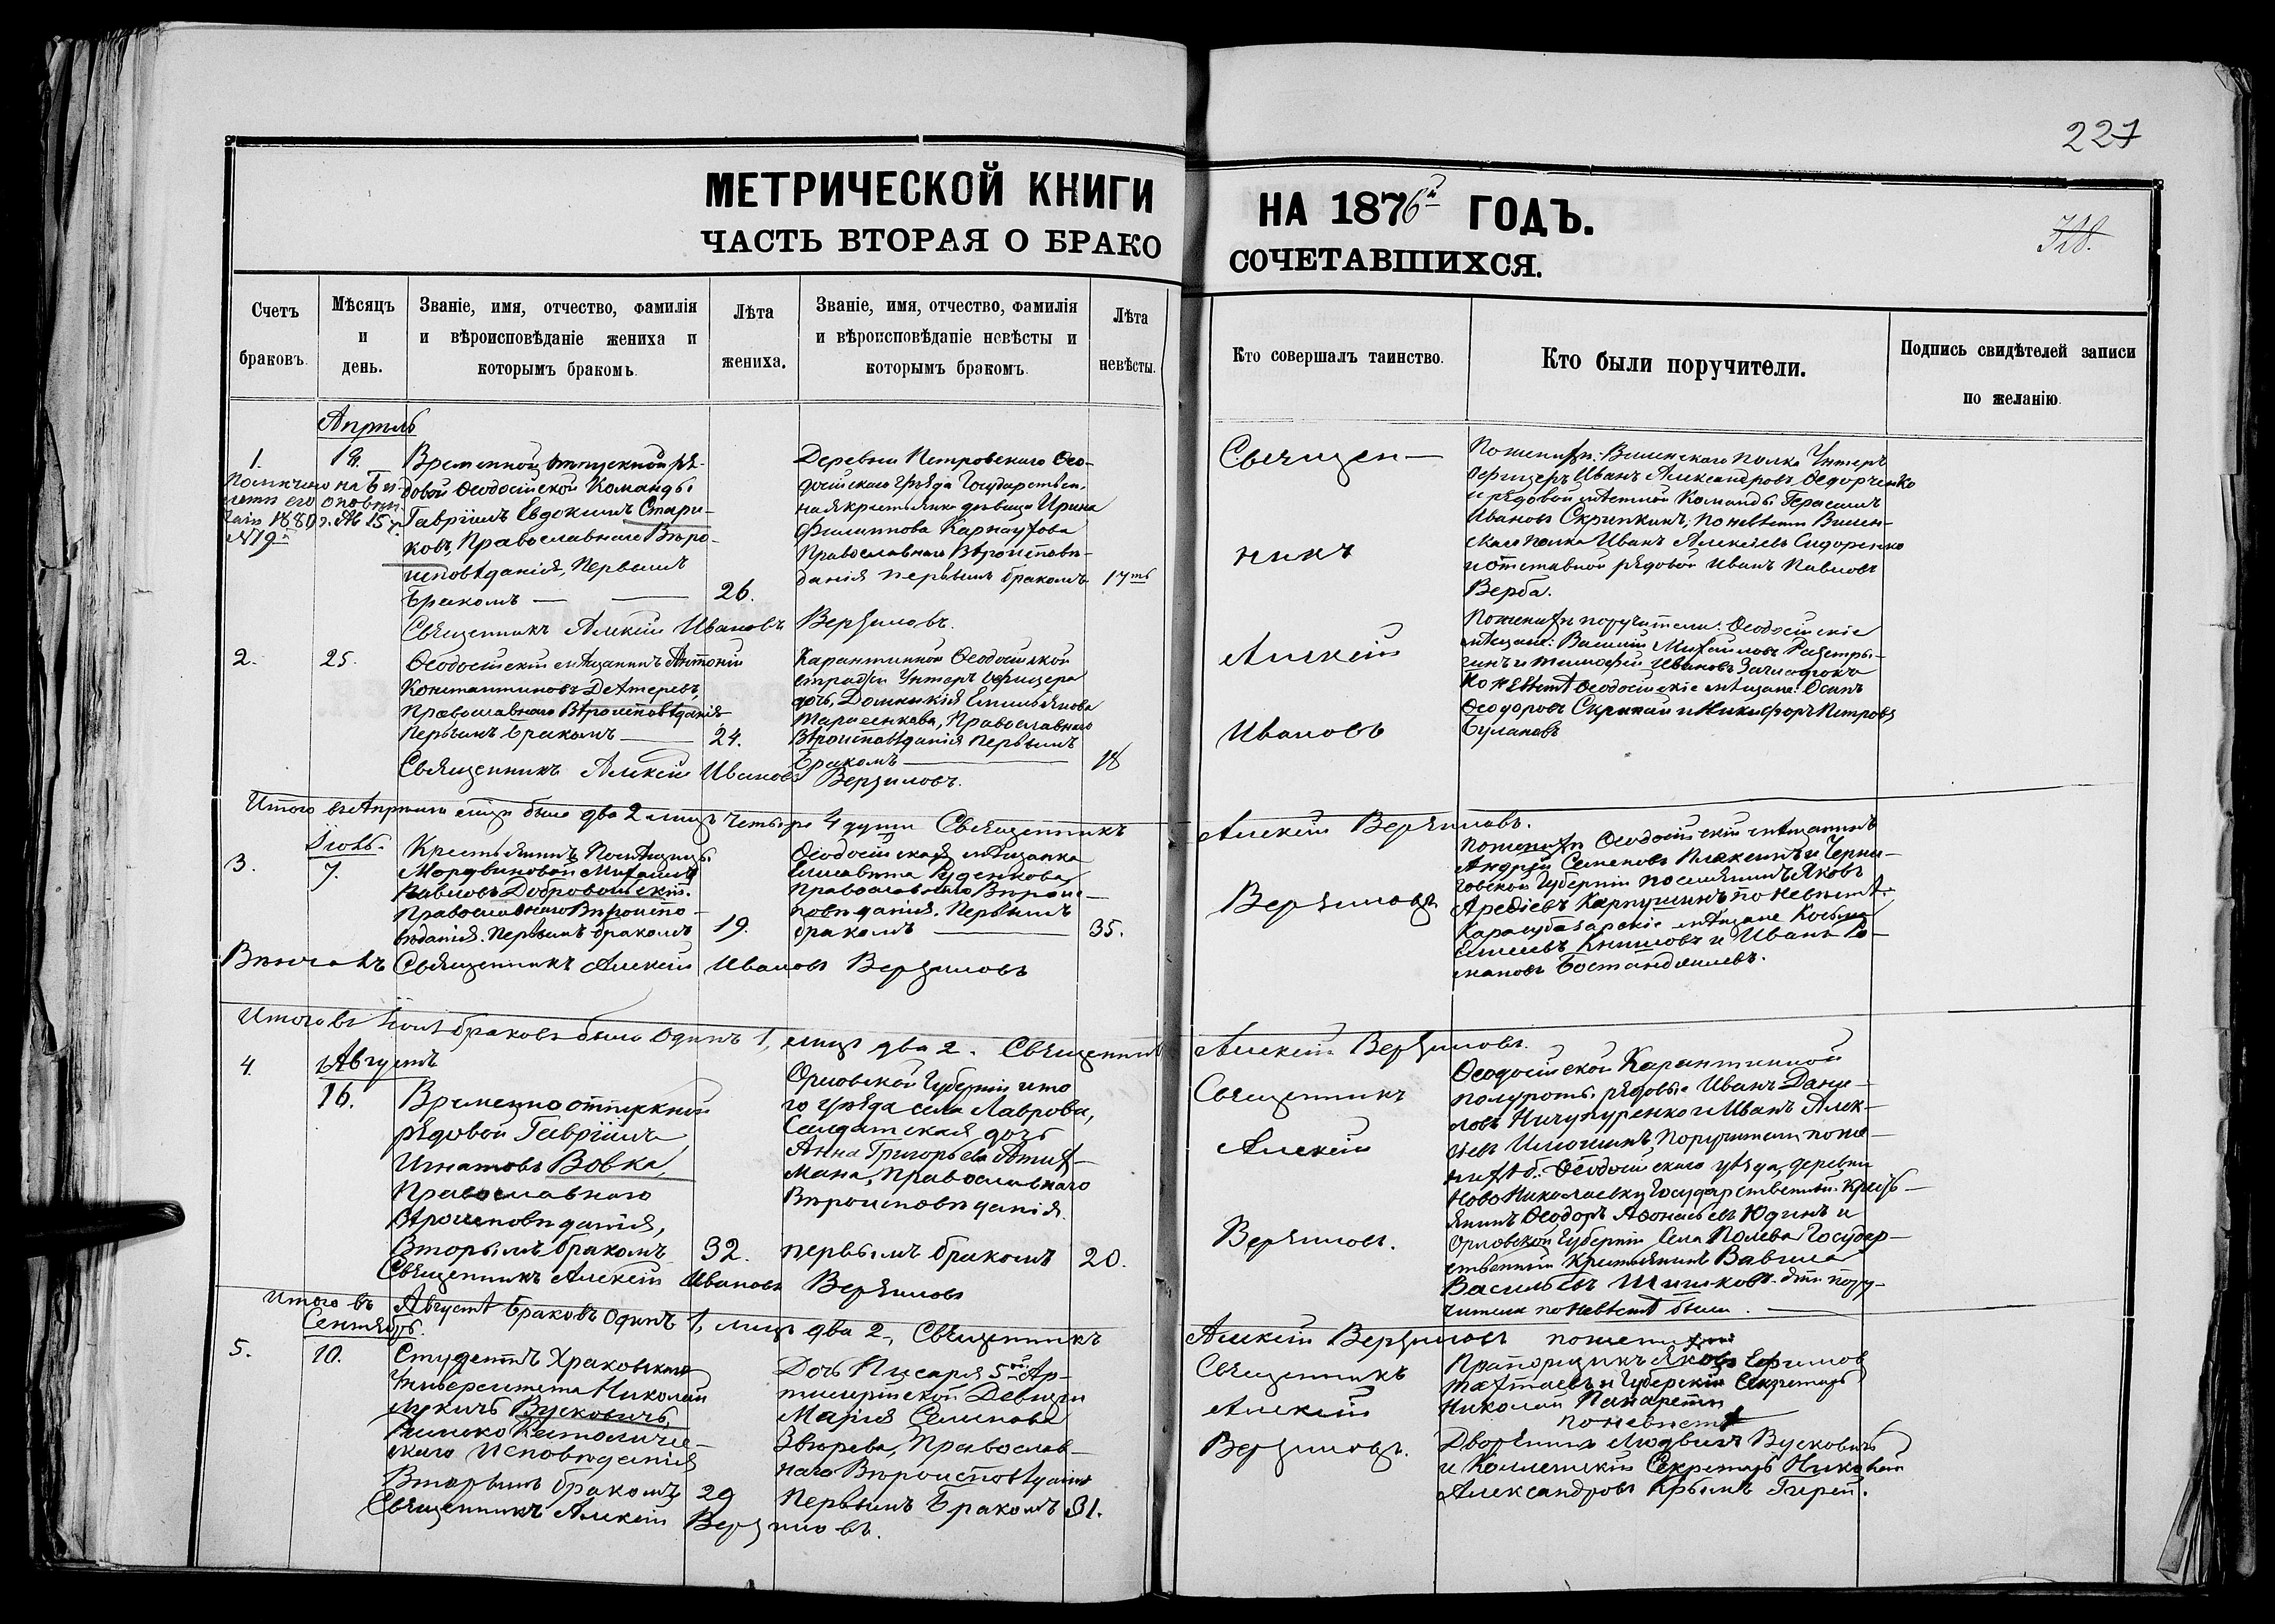 227
МЕТРИЧЕСКОЙ КНИГИ
НА 1876й ГОДЪ.
ЧАСТЬ ВТОРАЯ О БРАКО
СОЧЕТАВШИХСЯ.
Счетъ браковъ.
Мѣсяцъ и день.
Званіе, имя, отчество, фамилія
и вѣроисповѣданіе жениха и
которымъ бракомъ.
Лѣта жениха.
Званіе, имя, отчество, фамилія
и вѣроисповѣданіе невѣсты и
которымъ бракомъ.
Лѣта невѣсты.
Кто совершалъ таинство.
Кто были поручители.
Подпись свидѣтелей записи
по желанію.
Апрѣль
1.
18.
Временной отпускной ря-
довой Ѳеодосійской Команды
Гавріилъ Евдокимъ Стари-
ковъ, Православнаго Вѣро-
исповѣданія, Первымъ
бракомъ
26.
Деревни Петровскаго Ѳео-
досійскаго уѣзда Государствен-
ная крестьянка дѣвица Ирина
Филиппова Карнаухова
Православнаго Вѣроисповѣ-
данія первымъ бракомъ
17ть
Священникъ Алексій Ивановъ Верзиловъ.
Священ-
никъ
Алексій
Ивановъ
Верзиловъ
По женихѣ: Виленскаго полка Унтеръ
офицеръ Иванъ Александровъ Ѳедорченко
и рядовой мѣстной Команды Герасимъ
Ивановъ Скрипкинъ; по невѣстѣ Вилен-
скаго полка Иванъ Алексѣевъ Сидоренко
и отставной рядовой Иванъ Павловъ
Верба.
2.
25.
Ѳеодосійскій мѣщанинъ Антоній
Константиновъ Дегтеревъ,
Православнаго Вѣроисповѣданія
Первымъ бракомъ
24.
Карантинной Ѳеодосійской
стражи Унтеръ офицера
дочь, Домникія Емильянова
Тарасенкова, Православнаго
Вѣроисповѣданія Первымъ
Бракомъ
18
Священникъ Алексій Ивановъ Верзиловъ.
По женихѣ поручители: Ѳеодосійскіе
мѣщане: Василій Михайловъ
и Тимоѳей Ивановъ
По невѣстѣ Ѳеодосійскіе мѣщане: Осипъ
Ѳеодоровъ и Никифоръ Петровъ
Булановъ
Итого въ Апрѣлѣ мцѣ было два 2 лицъ четыре 4 души Священникъ
Алексій Верзиловъ.
Іюль.
3.
7.
Крестьянинъ Помѣщицы
Мордвиновой Михаилъ
Павловъ Добровольскій.
Православнаго Вѣроиспо-
вѣданія. Первымъ бракомъ
19.
Ѳеодосійская мѣщанка
Елисавета Руденкова
Православнаго Вѣроис-
повѣданія. Первымъ
бракомъ
35.
Священникъ Алексій Ивановъ Верзиловъ
По женихѣ Ѳеодосійскій мѣщанинъ
Андрей Семеновъ и Черни-
говской Губерніи поселянинъ Яковъ
по невѣстѣ.
Карасубазарскіе мѣщане Косьма
и Иванъ Ро-
мановъ
Итого въ Іюлѣ браковъ было одинъ 1, лицъ два 2. Священникъ
Алексій Верзиловъ.
4.
Августъ
16.
Временно отпускной
рядовой Гавріилъ
Игнатовъ Вовка,
Православнаго
Вѣроисповѣданія,
Вторымъ бракомъ
32.
Орловской Губерніи и то-
го уѣзда села Лаврова,
Солдатская дочь
Анна Григорьева
Православнаго
Вѣроисповѣданія.
первымъ бракомъ
20.
Священникъ Алексій Ивановъ Верзиловъ
Священникъ
Алексій
Верзиловъ.
Ѳеодосійской Карантинной
полуроты рядовые Иванъ Дани-
ловъ Ничупуренко и Иванъ Алек-
Поручители по же-
нихѣ б.: Ѳеодосійскаго уѣзда, деревни
Ново Николаевки Государственный Кресть-
янинъ Ѳеодоръ Аѳонасьевъ Юдинъ и
Орловской Губерніи Села Государ-
ственный Крестьянинъ Вавила
Васильевъ Шишковъ. Эти пору-
чители по невѣстѣ были.
Итого въ Августѣ Браковъ одинъ 1, лицъ два 2, Священникъ
Алексій Верзиловъ
Сентябрь.
5.
10.
Студентъ Храковскаго
Университета Николай
Лукичъ Вусковичъ,
Римско Католиче-
скаго Исповѣданія
Вторымъ бракомъ
29
Дочь Писаря 5ой Ар-
тиллерійской Дивизіи
Марія Семенова
Звѣрева, Православ-
наго Вѣроисповѣданія
Первымъ Бракомъ
31.
Священникъ Алексій Верзиловъ.
Священникъ
Алексій
Верзиловъ.
по женихѣ
Прапорщикъ Яковъ Ефимов
и Губерскій Секретарь
Николай
по невѣстѣ
Дворянинъ Людвигъ Вусковичъ
и Коллежскій Секретарь Николай
Александровъ Крымъ Гирей.